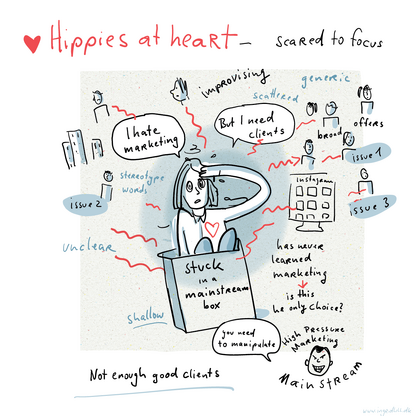 Hippies at heart – scared to focus
improvising
generic
scattered
I hate
marketing
But I need
clients
broad
offers
issue 1
stereotype
words
instagram
issue 2
issue 3
unclear
has never
learned
marketing
is this
he only choice?
stuck
in a
mainstream
box
shallow
you need
to manipulate
High Pressure
Marketing
Mainstream
Not enough good clients